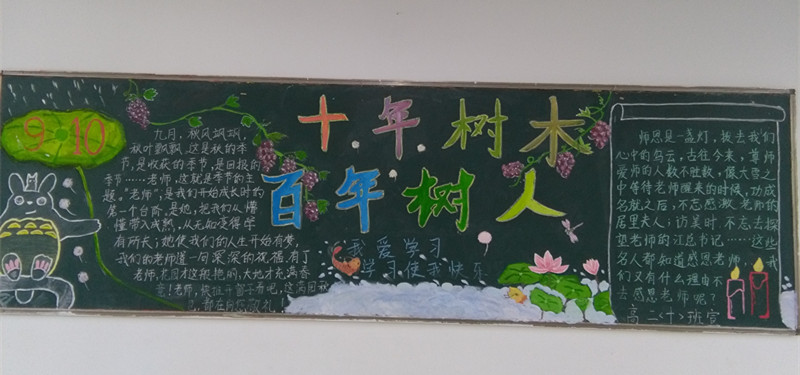 9 10
九月，秋风飒飒，
秋叶飘飘，这是秋的季
节，是收获的季节，是回报的
季节……老师，这就是季节的主
题。"老师"，是我们开始成长时的
第一个台阶，是她，把我们从懵
懂带入成熟，从无知变得学
有所夭；她使我们的人生开始有梦，
我们的老师道一句深深的祝福，有了
老师，花园才这般艳丽，大地才充满春
意！老师，快推开窗子看吧，这满园
都在向您敬礼！
十年树木
百年树人
我爱学习
学习使我快乐
师恩是一盏灯，拨去我们
心中的乌云，古往今来，尊师
爱师的人数不胜数，像大雪之
中等待老师醒来的时候，功成
名就之后，不忘感激老师的
居里夫人；访美时不忘去探
望老师的江总书记……这些
名人都知道感恩老师，我
们又有什么理由不
去感恩老师呢？
高二〈十〉班宣